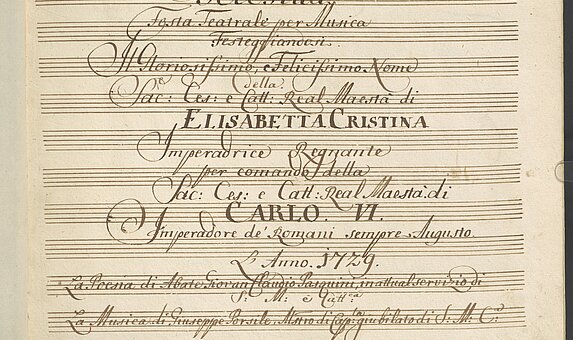 Festa Teatrale per Musica
Festeggiandosi.
Il Gloriosissimo, e Felicissimo Nome
della.
Sac: Ces: e Catt: Real Maestà di
ELISABETTA CRISTINA
Imperadrice Regnante
per comando della
Sac: Ces: e Catt: Real Maestà: di
CARLO. VI.
Imperadore de' Romani sempre Augusto.
L'Anno. 1729.
La Poesia di Abate Giovan Claudio Pasquini, in attual servizio di
S: M: e Catt:ca
La Musica di Giuseppe Porsile, Mstro di Cap:la giubilato di S: M: C:a